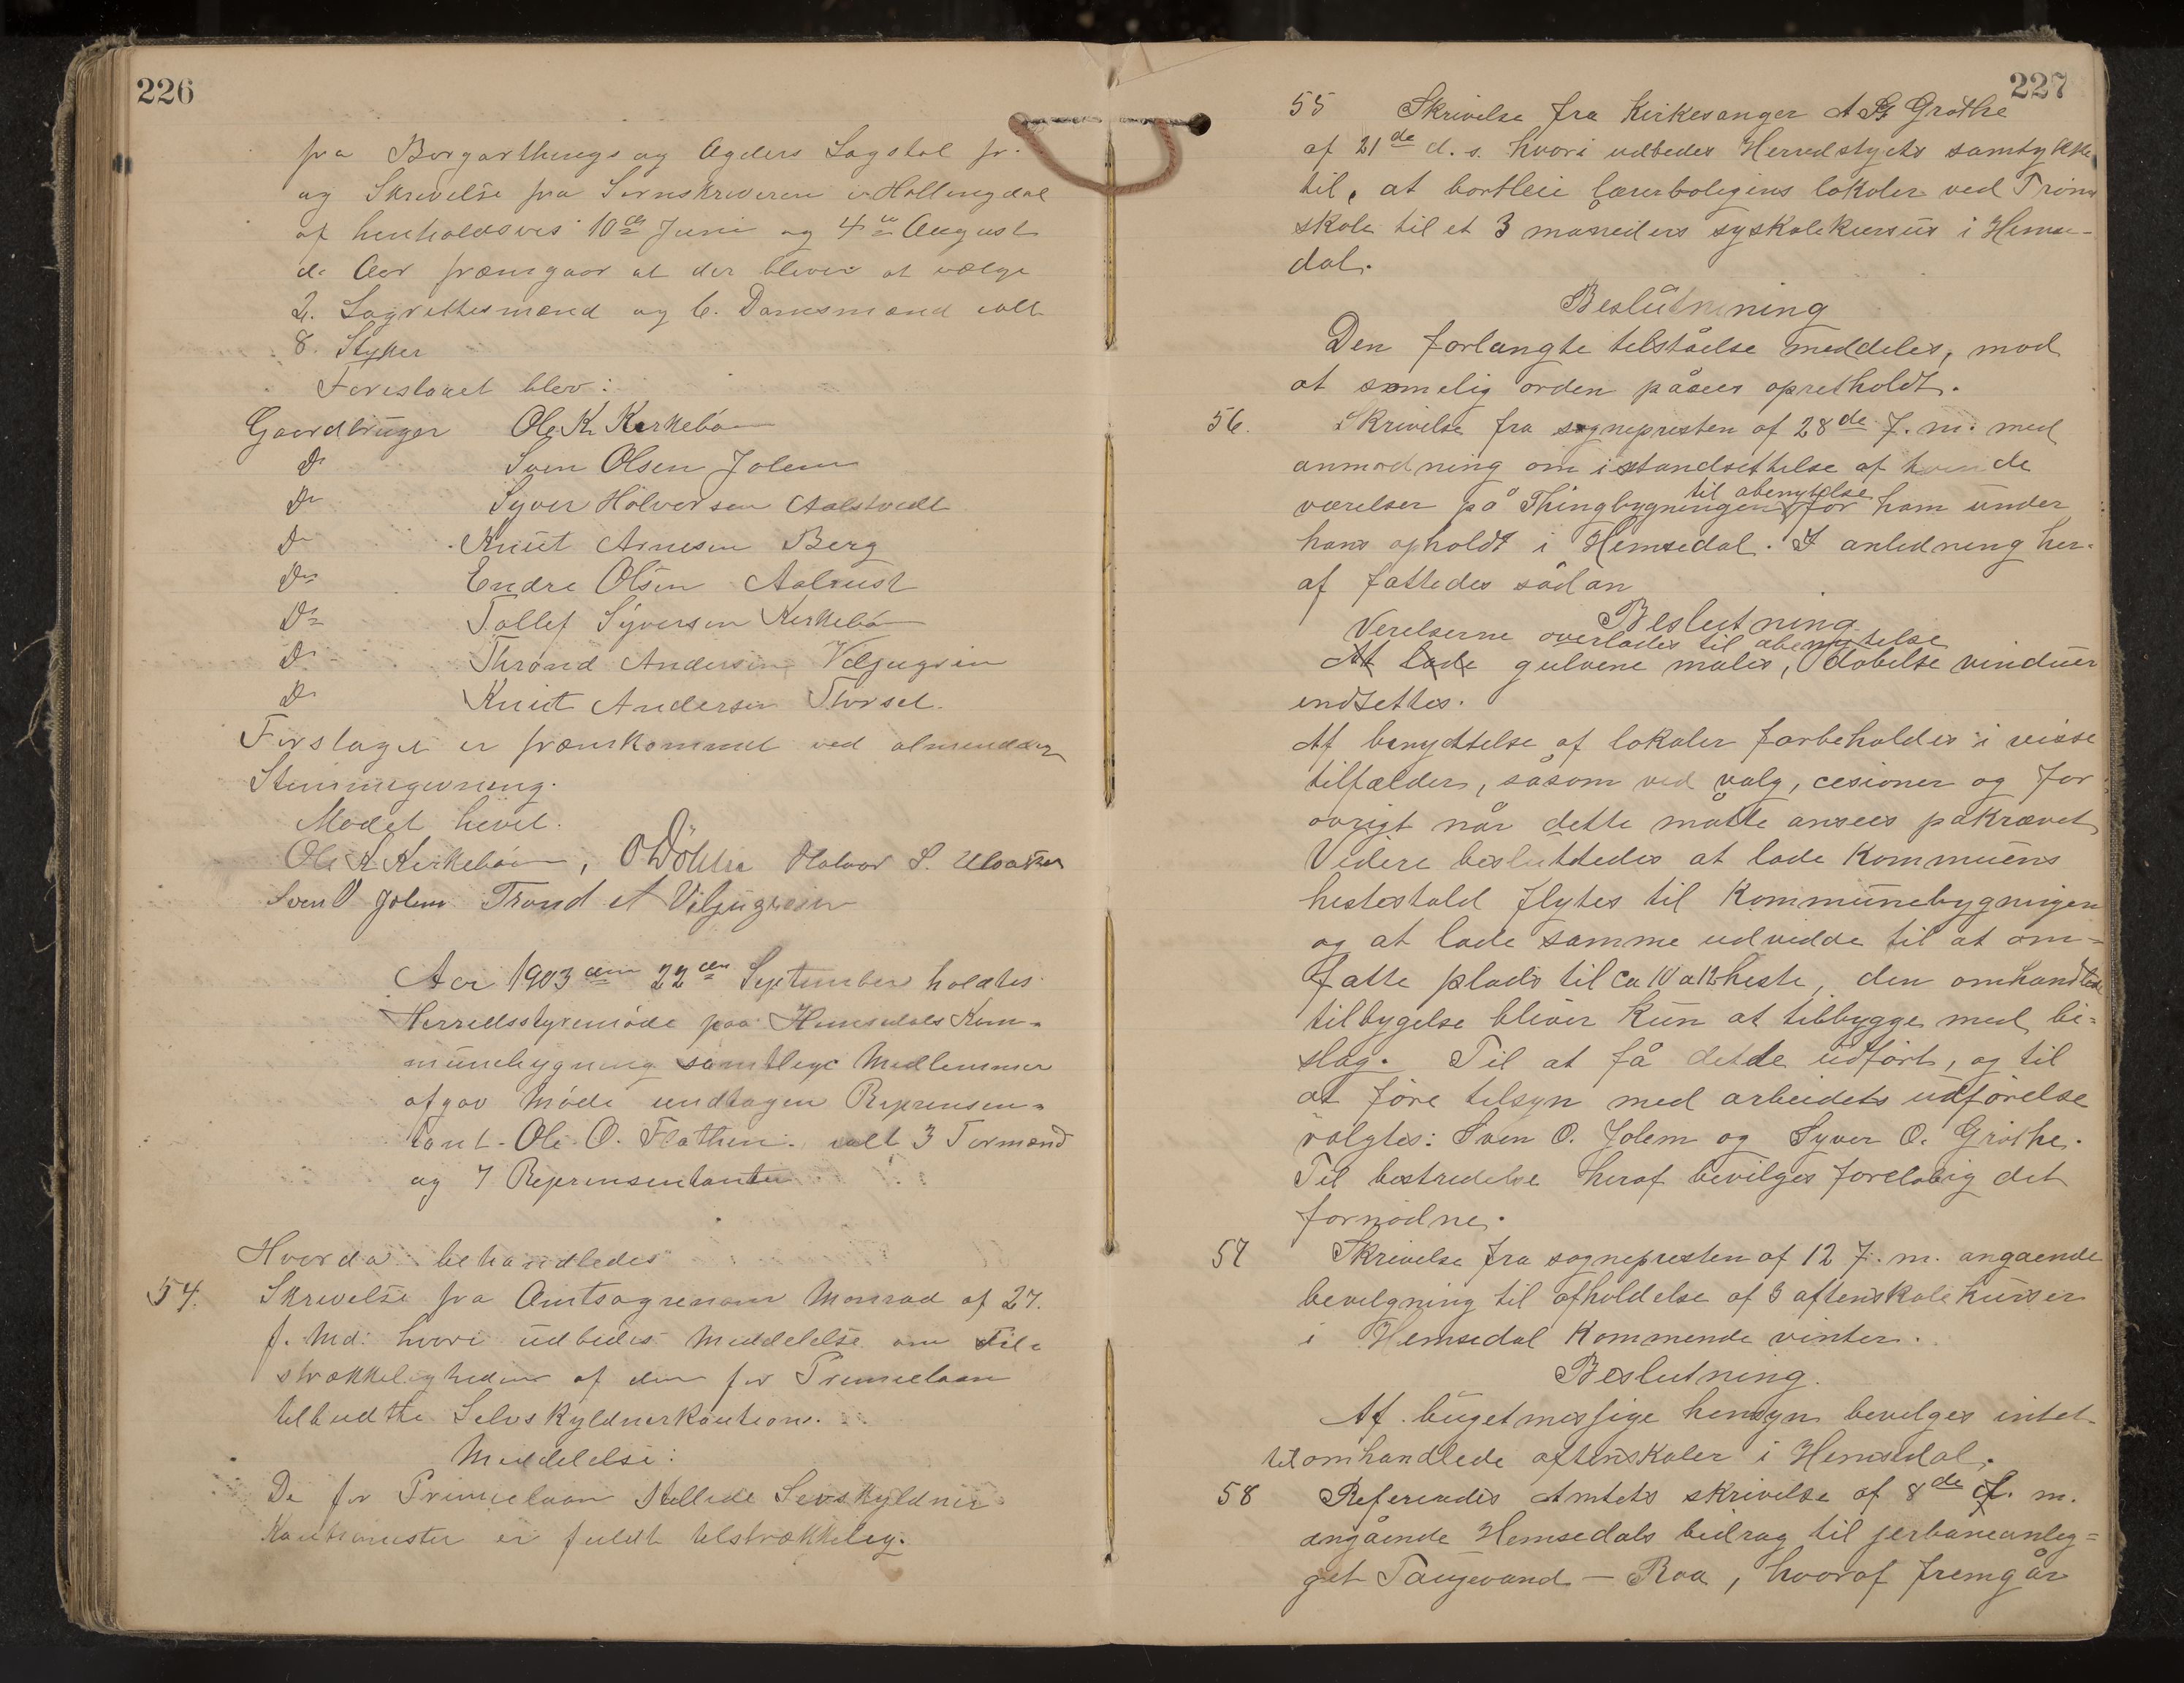 226
fra Borgarthings og Agders Lagstol
og Skrivelse fra Sorenskriveren i Hallingdal
af henholdsvis 10de Juni og 4de August
d. Aar fremgaar at der bliver at vælge
2. Lagrettesmænd og 6. Domsmænd ialt
8. Styker
Foreslaaet blev:
Gaardbruger Ole K. Kirkebøn
Do Sven Olsen Jolem
Do Syver Halvorsen
Do Knut Arnesen Berg
Do Endre Olsen Aalrust
Do Tollef Syversen Kirkebøn
Do Thrond Andersen Viljugrein
Do Knut Andersen Thorset.
Forslaget er fremkommet ved almindelig
Stemmegivning.
Mødet hævet.
Ole K. Kirkebøen, Halvor S. Ulsaker
Sven O Jolem Trond A Viljugrein
Aar 1903 den 22de September holdtes
Herredsstyremøde paa Hemsedals Kom-
munebygning samtlige Medlemmer
afgav Møde undtagen Reprensen-
tant Ole O. Flathen. ialt 3 Formænd
og 7 Reprensentanter
Hvorda behandledes
54. Skrivelse fra Amtsagronom Monrad af 27.
f. Md. hvori udbedes Meddelelse om Til-
strækkeligheden af den for Premielaan
tilbudte Selvskyldnerkaution.
Meddelelse:
De for Premielaan stillede Selvskyldner
Kautionister er fuldt tilstrækkelig.
227
55 Skrivelse fra Kirkesanger A Grøthe
af 21de d. s. hvori udbedes Herredstyrets samtykke
til, at bortleie lærerboligens lokaler ved Trøim
skole til et 3 måneders syskolekursus i Hemse-
dal.
Beslutnining
Den forlangte tilståelse meddeles, mod
at sømelig orden påsees opretholdt.
56. Skrivelse fra sognepresten af 28de f. m. med
anmodning om istandsettelse af de
til abenytelse
værelser på Thingbygningen for ham under
hans opholdt i Hemsedal. I anledning her-
af fattedes sådan
Beslutning
Verelserne overlades til abenytelse
At lade gulvene males, dobelte vinduer
endsettes.
Af benyttelse af lokaler forbeholdes i visse
tilfælder, såsom ved valg, cesioner og for
øvrigt når dette måtte ansees påkrævet
Videre besluttedes at lade Kommuens
hestestald flytes til Kommunebygningen
og at lade samme udvidde til at om-
fatte plads til ca 10 a 12 heste, den omhandlede
tilbygelse bliver kun at tilbygge med bi-
slag. Til at få dette udført, og til
at føre tilsyn med arbeidets udførelse
valgtes: Sven O. Jolem og Syver O. Grøthe.
Til bestridelse heraf bevilges foreløbig det
fornødne.
57 Skrivelse fra sognepresten af 12 f. m. angaende
bevilgning til afholdelse af 3 aftenskolekurser
i Hemsedal Kommende vinter.
Beslutning.
Af bugetmessige hensyn bevilges intet
til omhandlede aftenskoler i Hemsedal.
58 Refereredes Amtets skrivelse af 8de f. m.
angående Hemsedals bidrag til jerbaneanleg-
get Taugevand - Roa, hvoraf fremgår